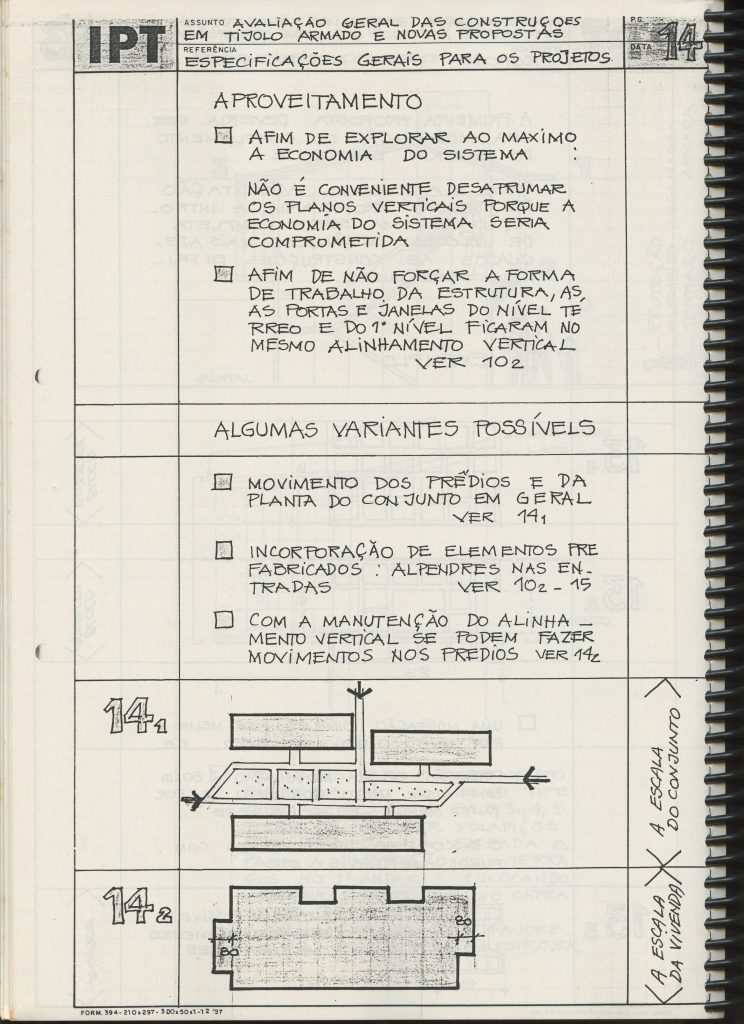 IPT
ASSUNTO AVALIAÇÃO GERAL DAS CONSTRUÇOES
EM TIJOLO ARMADO E NOVAS PROPOSTAS
REFERÊNCIA
ESPECIFICAÇÕES GERAIS PARA OS PROJETOS
P.G.
14
DATA
APROVEITAMENTO
AFIM DE EXPLORAR AO MAXIMO
A ECONOMIA DO SISTEMA :
NÃO É CONVENIENTE DESARRUMAR
OS PLANOS VERTICAIS PORQUE A
ECONOMIA DO SISTEMA SERIA
COMPROMETIDA
AFIM DE NÃO FORÇAR A FORMA
DE TRABALHO DA ESTRUTURA, AS
AS PORTAS E JANELAS DO NÍVEL TÉ
RREO E DO 1º NÍVEL FICARAM NO
MESMO ALINHAMENTO VERTICAL
VER 10₂
ALGUMAS VARIANTES POSSÍVELS
MOVIMENTO DOS PRÉDIOS E DA
PLANTA DO CONJUNTO EM GERAL
VER 14₁
INCORPORAÇÃO DE ELEMENTOS PRE
FABRICADOS : ALPENDRES NAS EN-
TRADAS VER 10₂-15
COM A MANUTENÇÃO DO ALINHA-
MENTO VERTICAL SE PODEM FAZER
MOVIMENTOS NOS PREDIOS VER 14₂
14₁
A ESCALA
DO CONJUNTO
14₂
80
80
A ESCALA
DA VIVENDA
FORM. 394-210x297-300x50x1-12'57